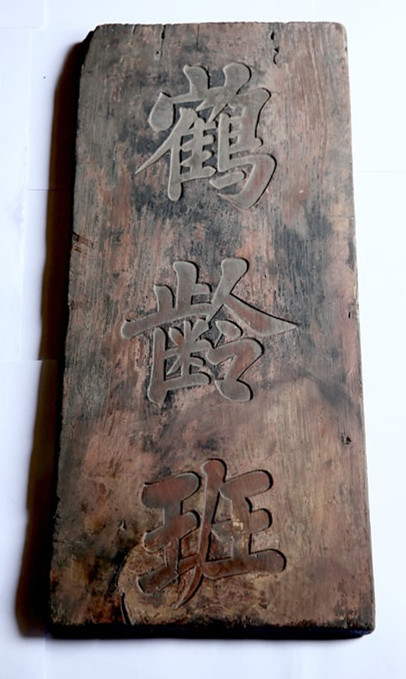 鶴齡班